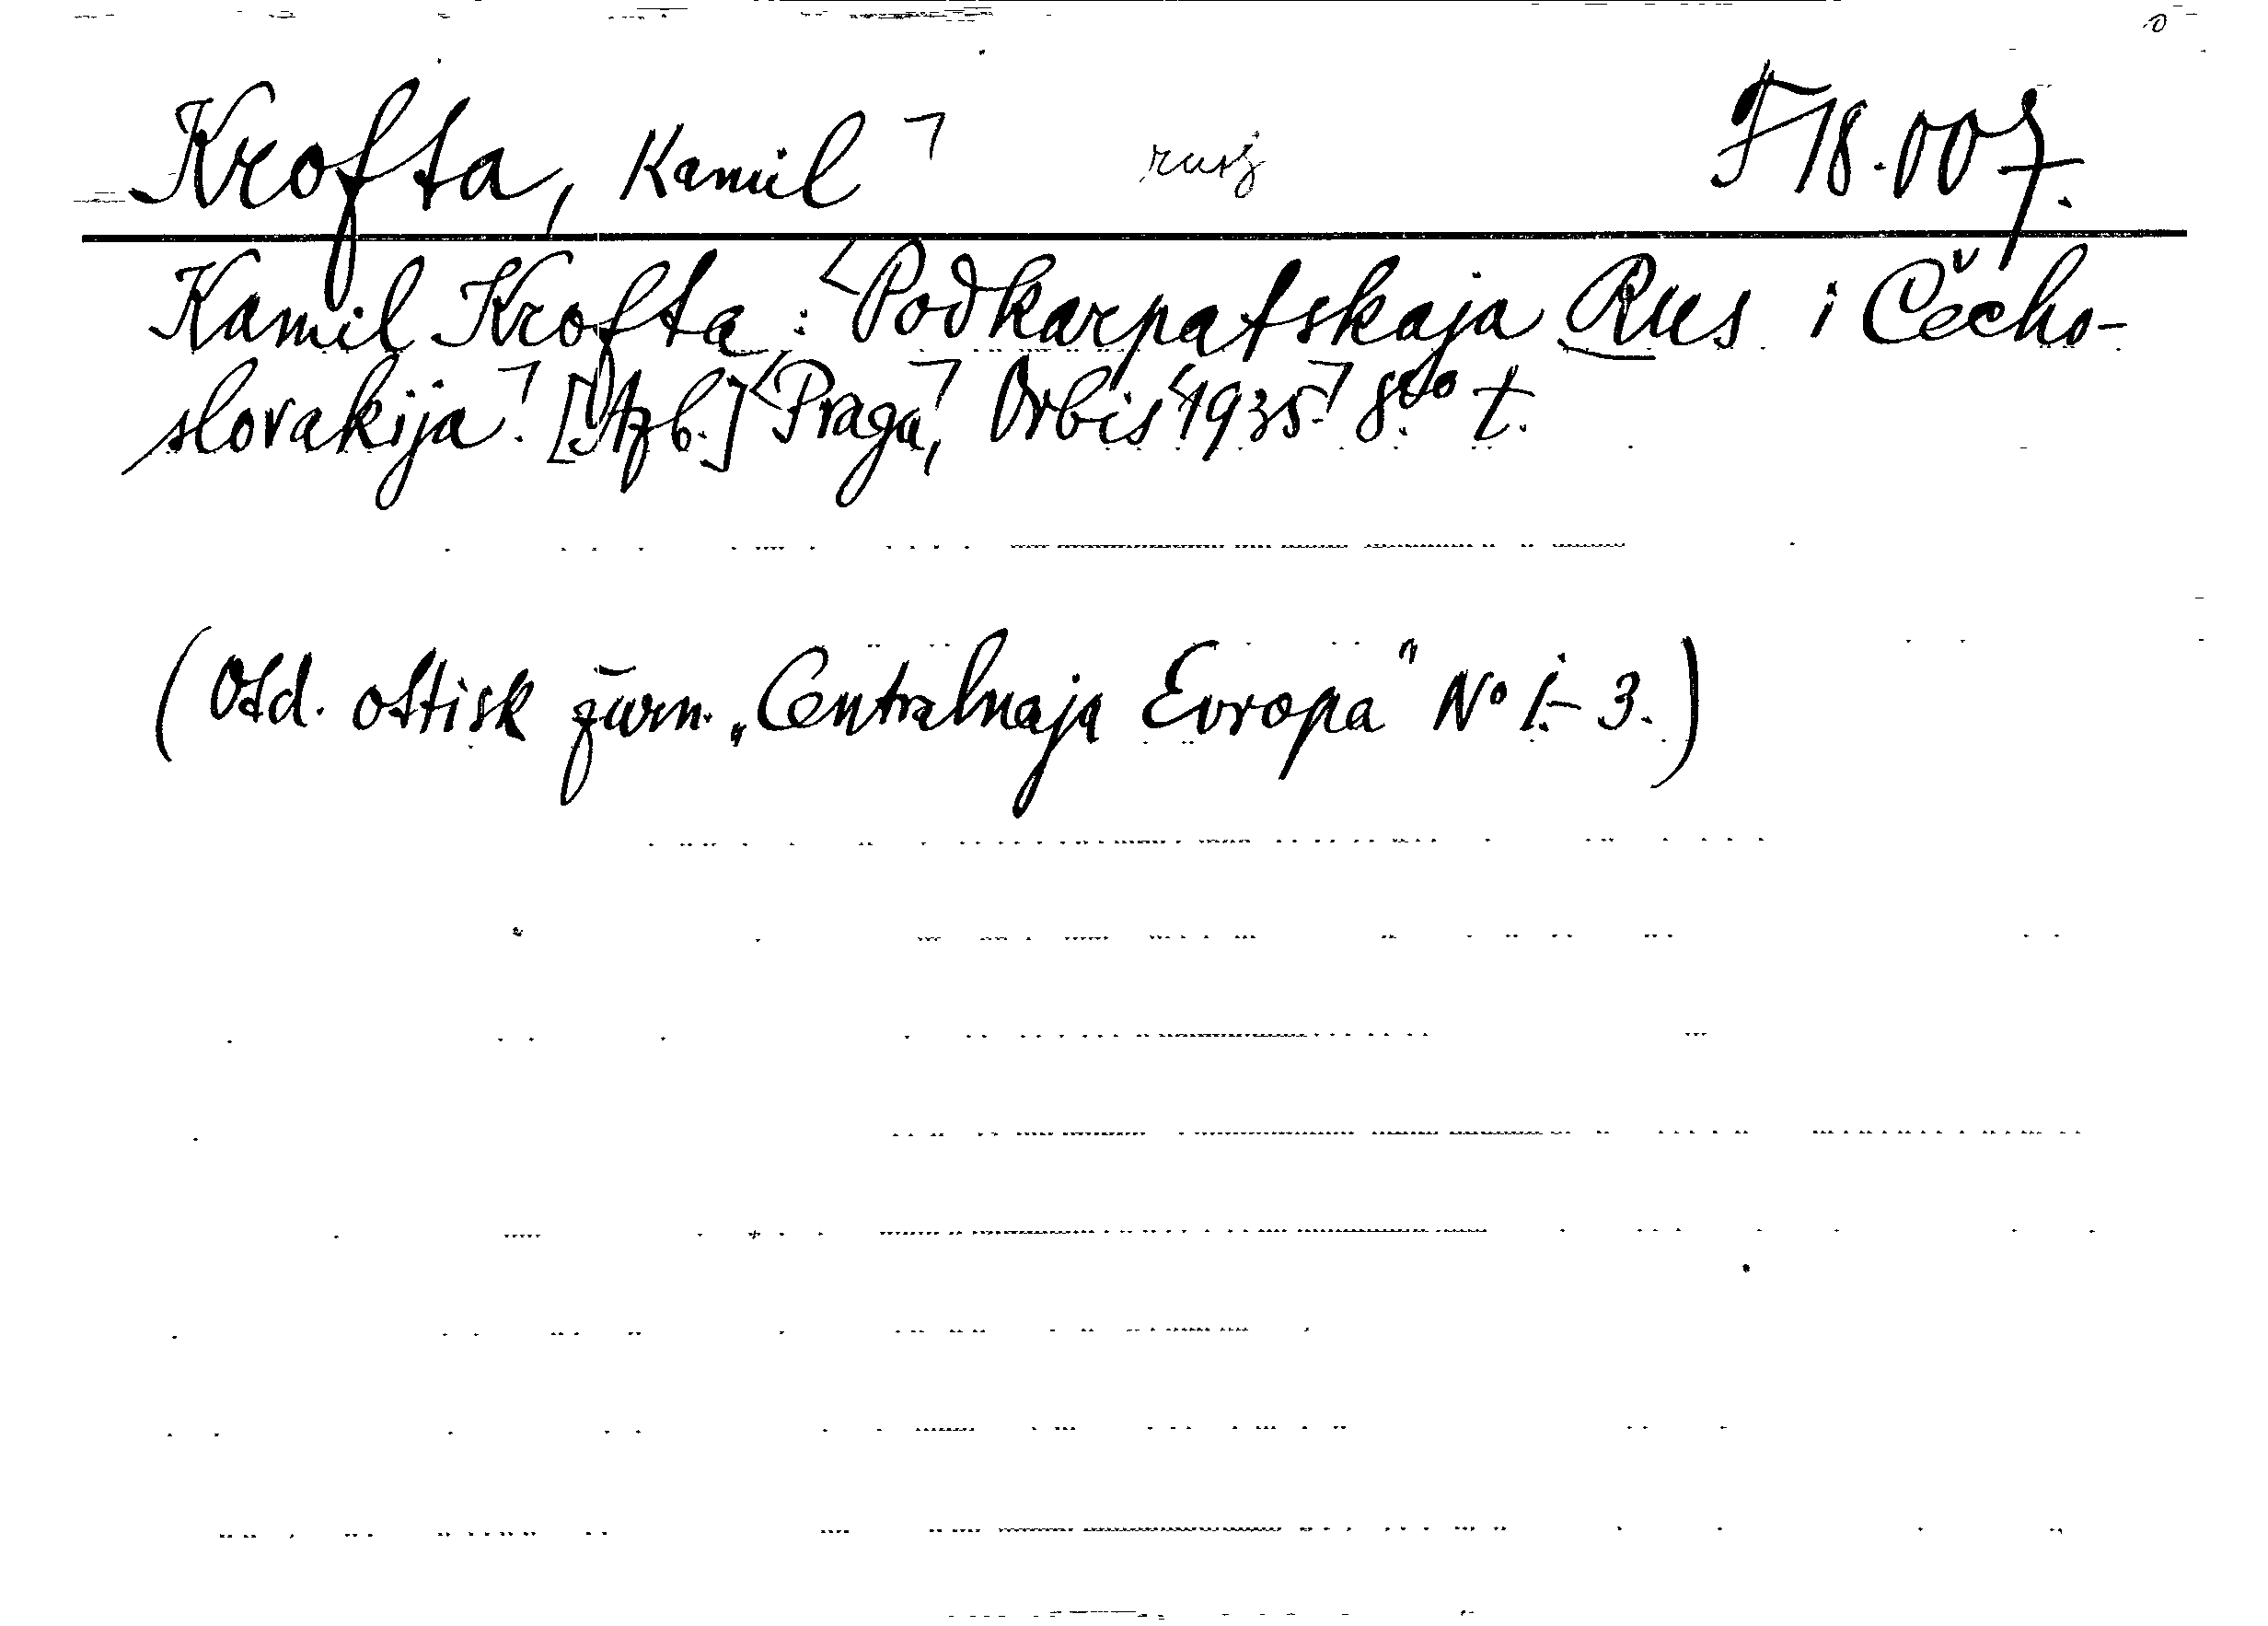 Krofta, Kamil rusz F 18.007.
Kamil Krofta: Podkarpatskaja Rus i Čecho-
slovakija. [Azb.] Praga, Orbis 1935. 8° t.
(Otd. ottisk žurn. „Centralnaja Evropa" No 1.-3.)